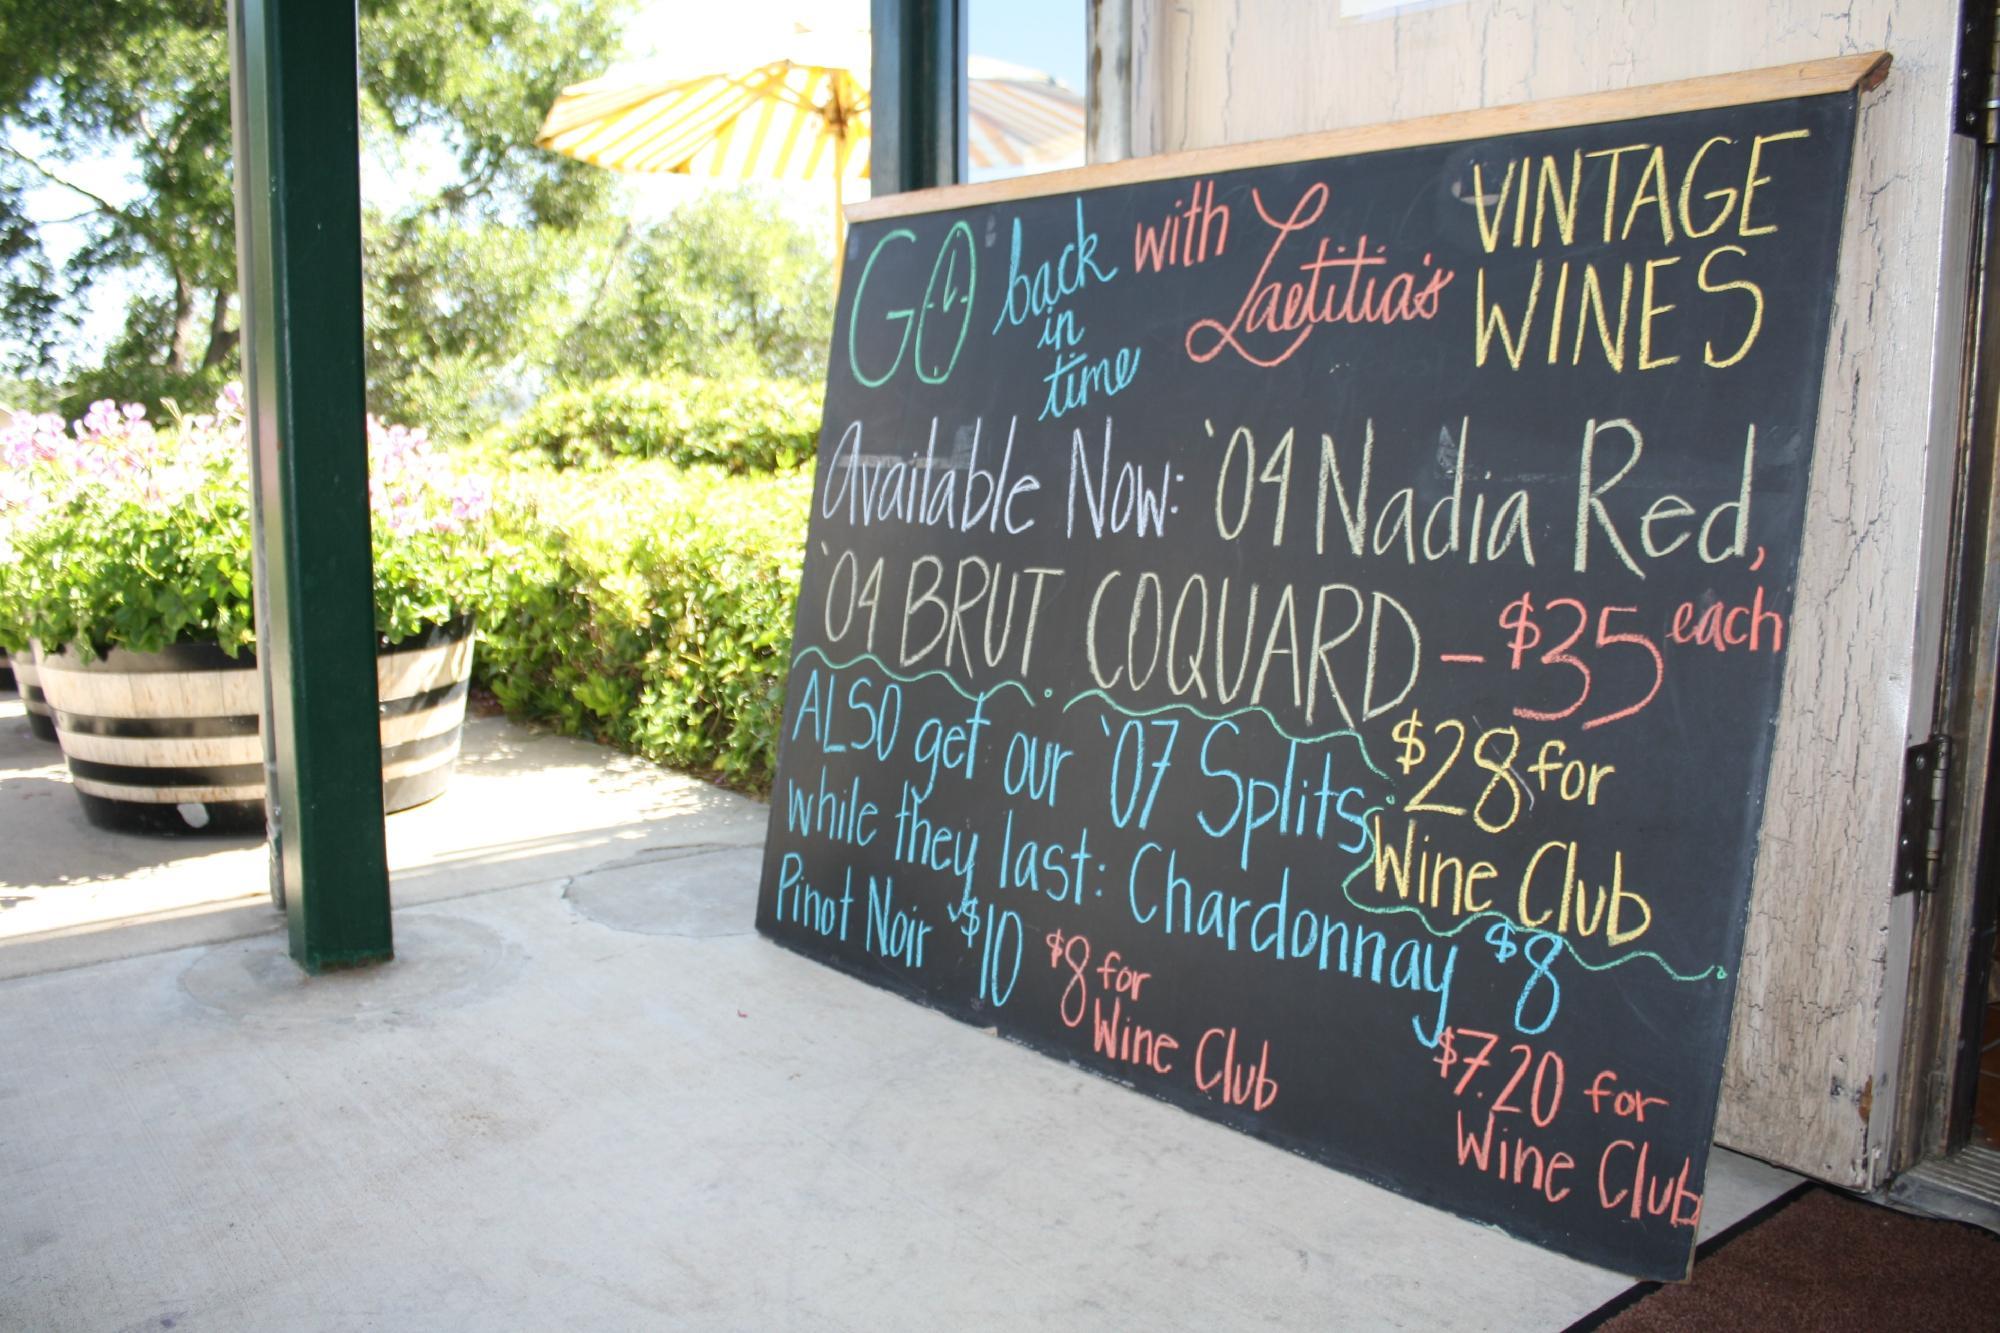 GO back with Laetitia's VINTAGE
in WINES
time
Available Now: '04 Nadia Red,
'04 BRUT COQUARD - $35 each
ALSO get our '07 Splits $28 for
while they last: Chardonnay $8 Wine Club
Pinot Noir $10 $8 for
Wine Club
$7.20 for
Wine Club